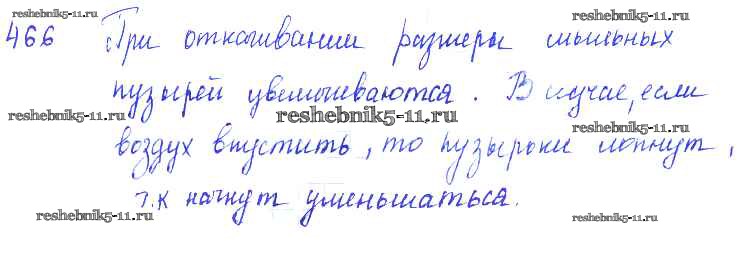 reshebnik5-11.ru reshebnik5-11.ru
466 При откачивании размеры мыльных
пузырей увеличиваются. В случае, если
reshebnik5-11.ru reshebnik5-11.ru reshebnik5-11.ru
воздух впустить, то пузырьки лопнут,
т.к начнут уменьшаться.
reshebnik5-11.ru reshebnik5-11.ru reshebnik5-11.ru